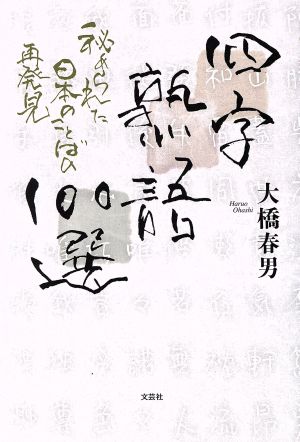 四字
熟語
100選
秘められた
日本のことばの
再発見
大橋春男
Haruo
Ohashi
文芸社